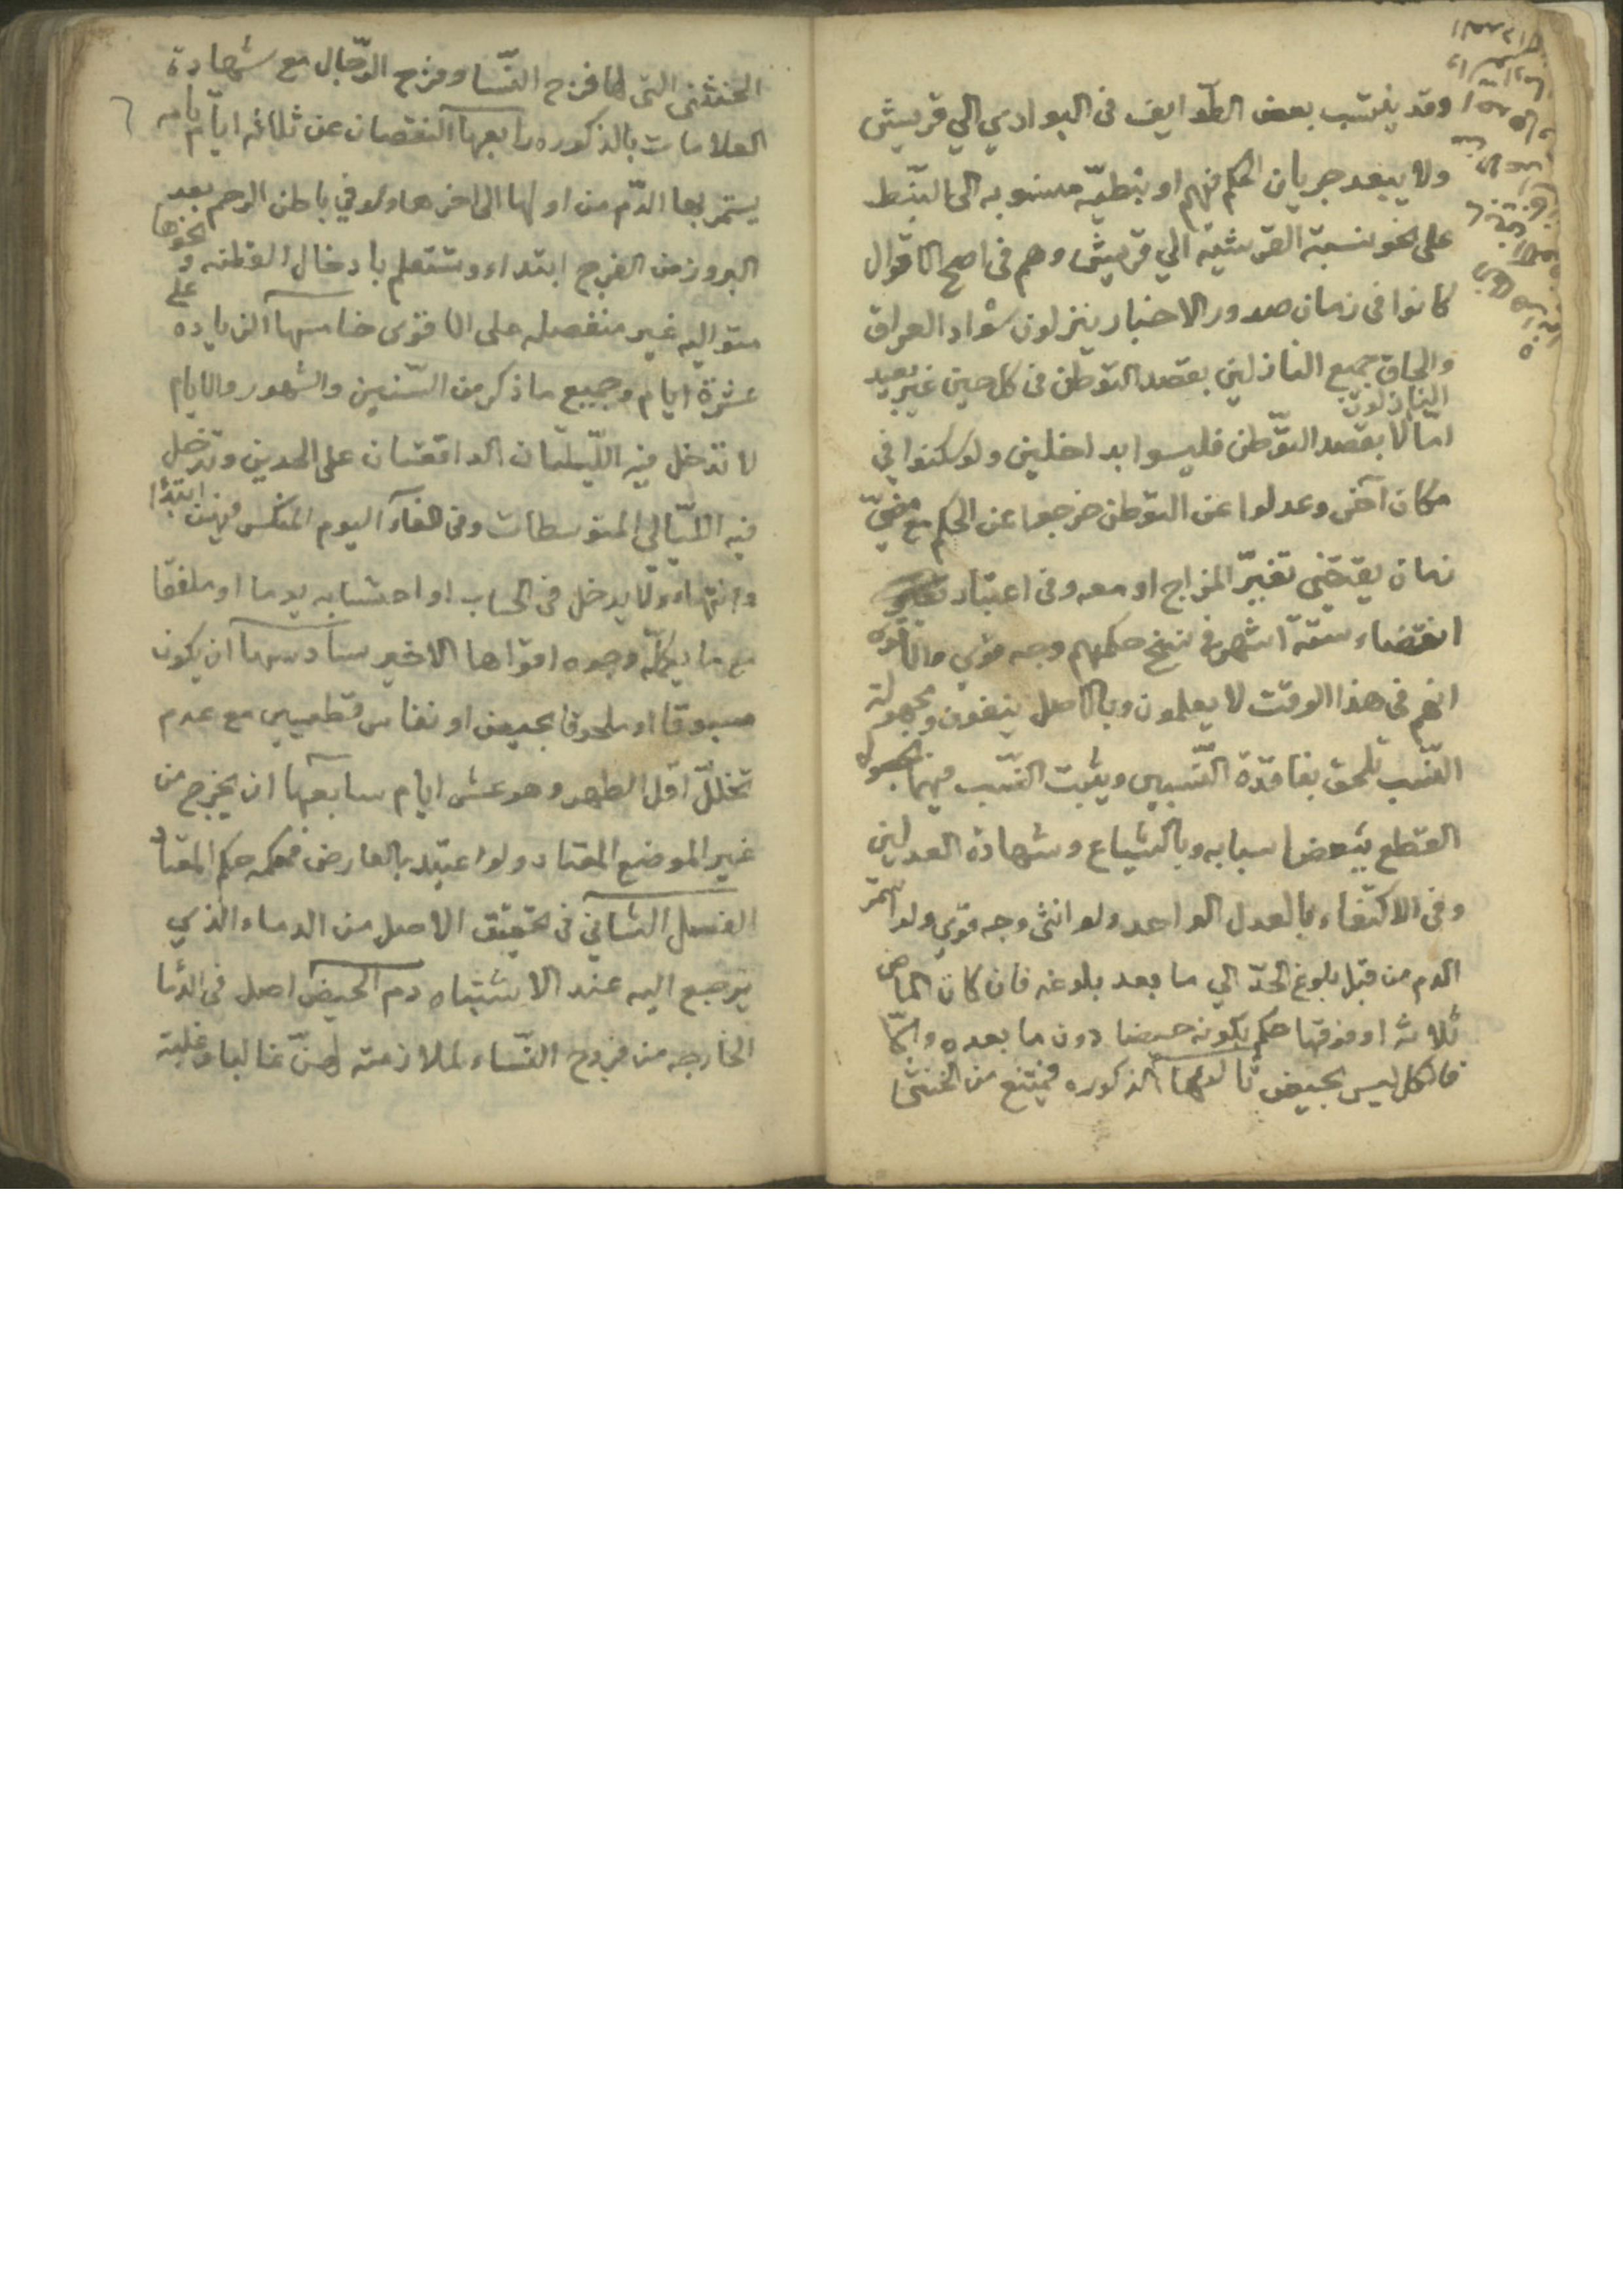 وقد ينتسب بعض الطّوايف في البوادي الي قريش
ولا يبعد جريان الحكم فيهم او بنطيّه منسوبه الى النبّط
على نحو نسبة القرشيّة الي قريش وهم في اصح الاقوال
كانوا في زمان صدور الاخبار ينزلون سواد العراق
والحاق جميع النازلين بقصد التوطن في كل حين غير بعيد
النازلون
امّا لا بقصد التوّطن فليسوا بداخلين ولو سكنوا في
مكان آخر وعدلوا عن التوطن خرجوا عن الحكم مع مضيّ
زمان يقتضي تغيّر المزاج او معه وفي اعتبار
انقضاء ستة اشهر في نسخ حكمهم وجه قوي والاقوى
انهم في هذا الوقت لا يعلمون وبالاصل ينفون ومجهولة
النّسب تلحق بفاقدة النّسبين ويثبت النّسب فيهما بحصول
القطع ببعض اسبابه وبالشياع وشهادة العدلين
وفي الاكتفاء بالعدل الواحد ولو انثى وجه قوي ولو استمر
الدم من قبل بلوغ الحدّ الي ما بعد بلوغه فان كان الماضي
ثلاثه او فوقها حكم بكونه حيضا دون ما بعده والّا
فالكل ليس بحيض ثالثها الذكوره فيمتنع من الخنثى
الخنثى التي لها فرج النّسا وفرج الرّجال مع شهادة
العلامات بالذكوره رابعها النقصان عن ثلاثه ايّام تامه
يستمر بها الدّم من اولها الى اخرها ولو في باطن الرحم بعد
البروز من الفرج ابتداء وتستعلم بادخال القطنه و نحوها
متواليه غير منفصله على الاقوى خامسها الزياده على
عشرة ايام وجميع ما ذكر من السّنين والشهور والايام
لا تدخل فيه اللّيلتان الواقعتان على الحدين وتدخل
فيه اللّيالي المتوسطات وفي الغاء اليوم المنكسر فيهن ابتدا
وانتهاء ولا يدخل في الحساب او احتسابه يوما او ملفقا
مع ما يكملّه وجوه اقواها الاخير سادسها ان يكون
مسبوقا او ملحوقا بحيض او نفاس قطعيين مع عدم
تخلّل اقل الطهر وهو عشر ايام سابعها ان يخرج من
غير الموضع المعتاد ولو اعتيد بالعارض فحكمه حكم المعتاد
الفصل الثاني في تحقيق الاصل من الدماء الذي
يرجع اليه عند الاشتباه دم الحيض اصل في الدّما
الخارجه من فروج النّساء لملازمته لهنّ غالبا وغلبته